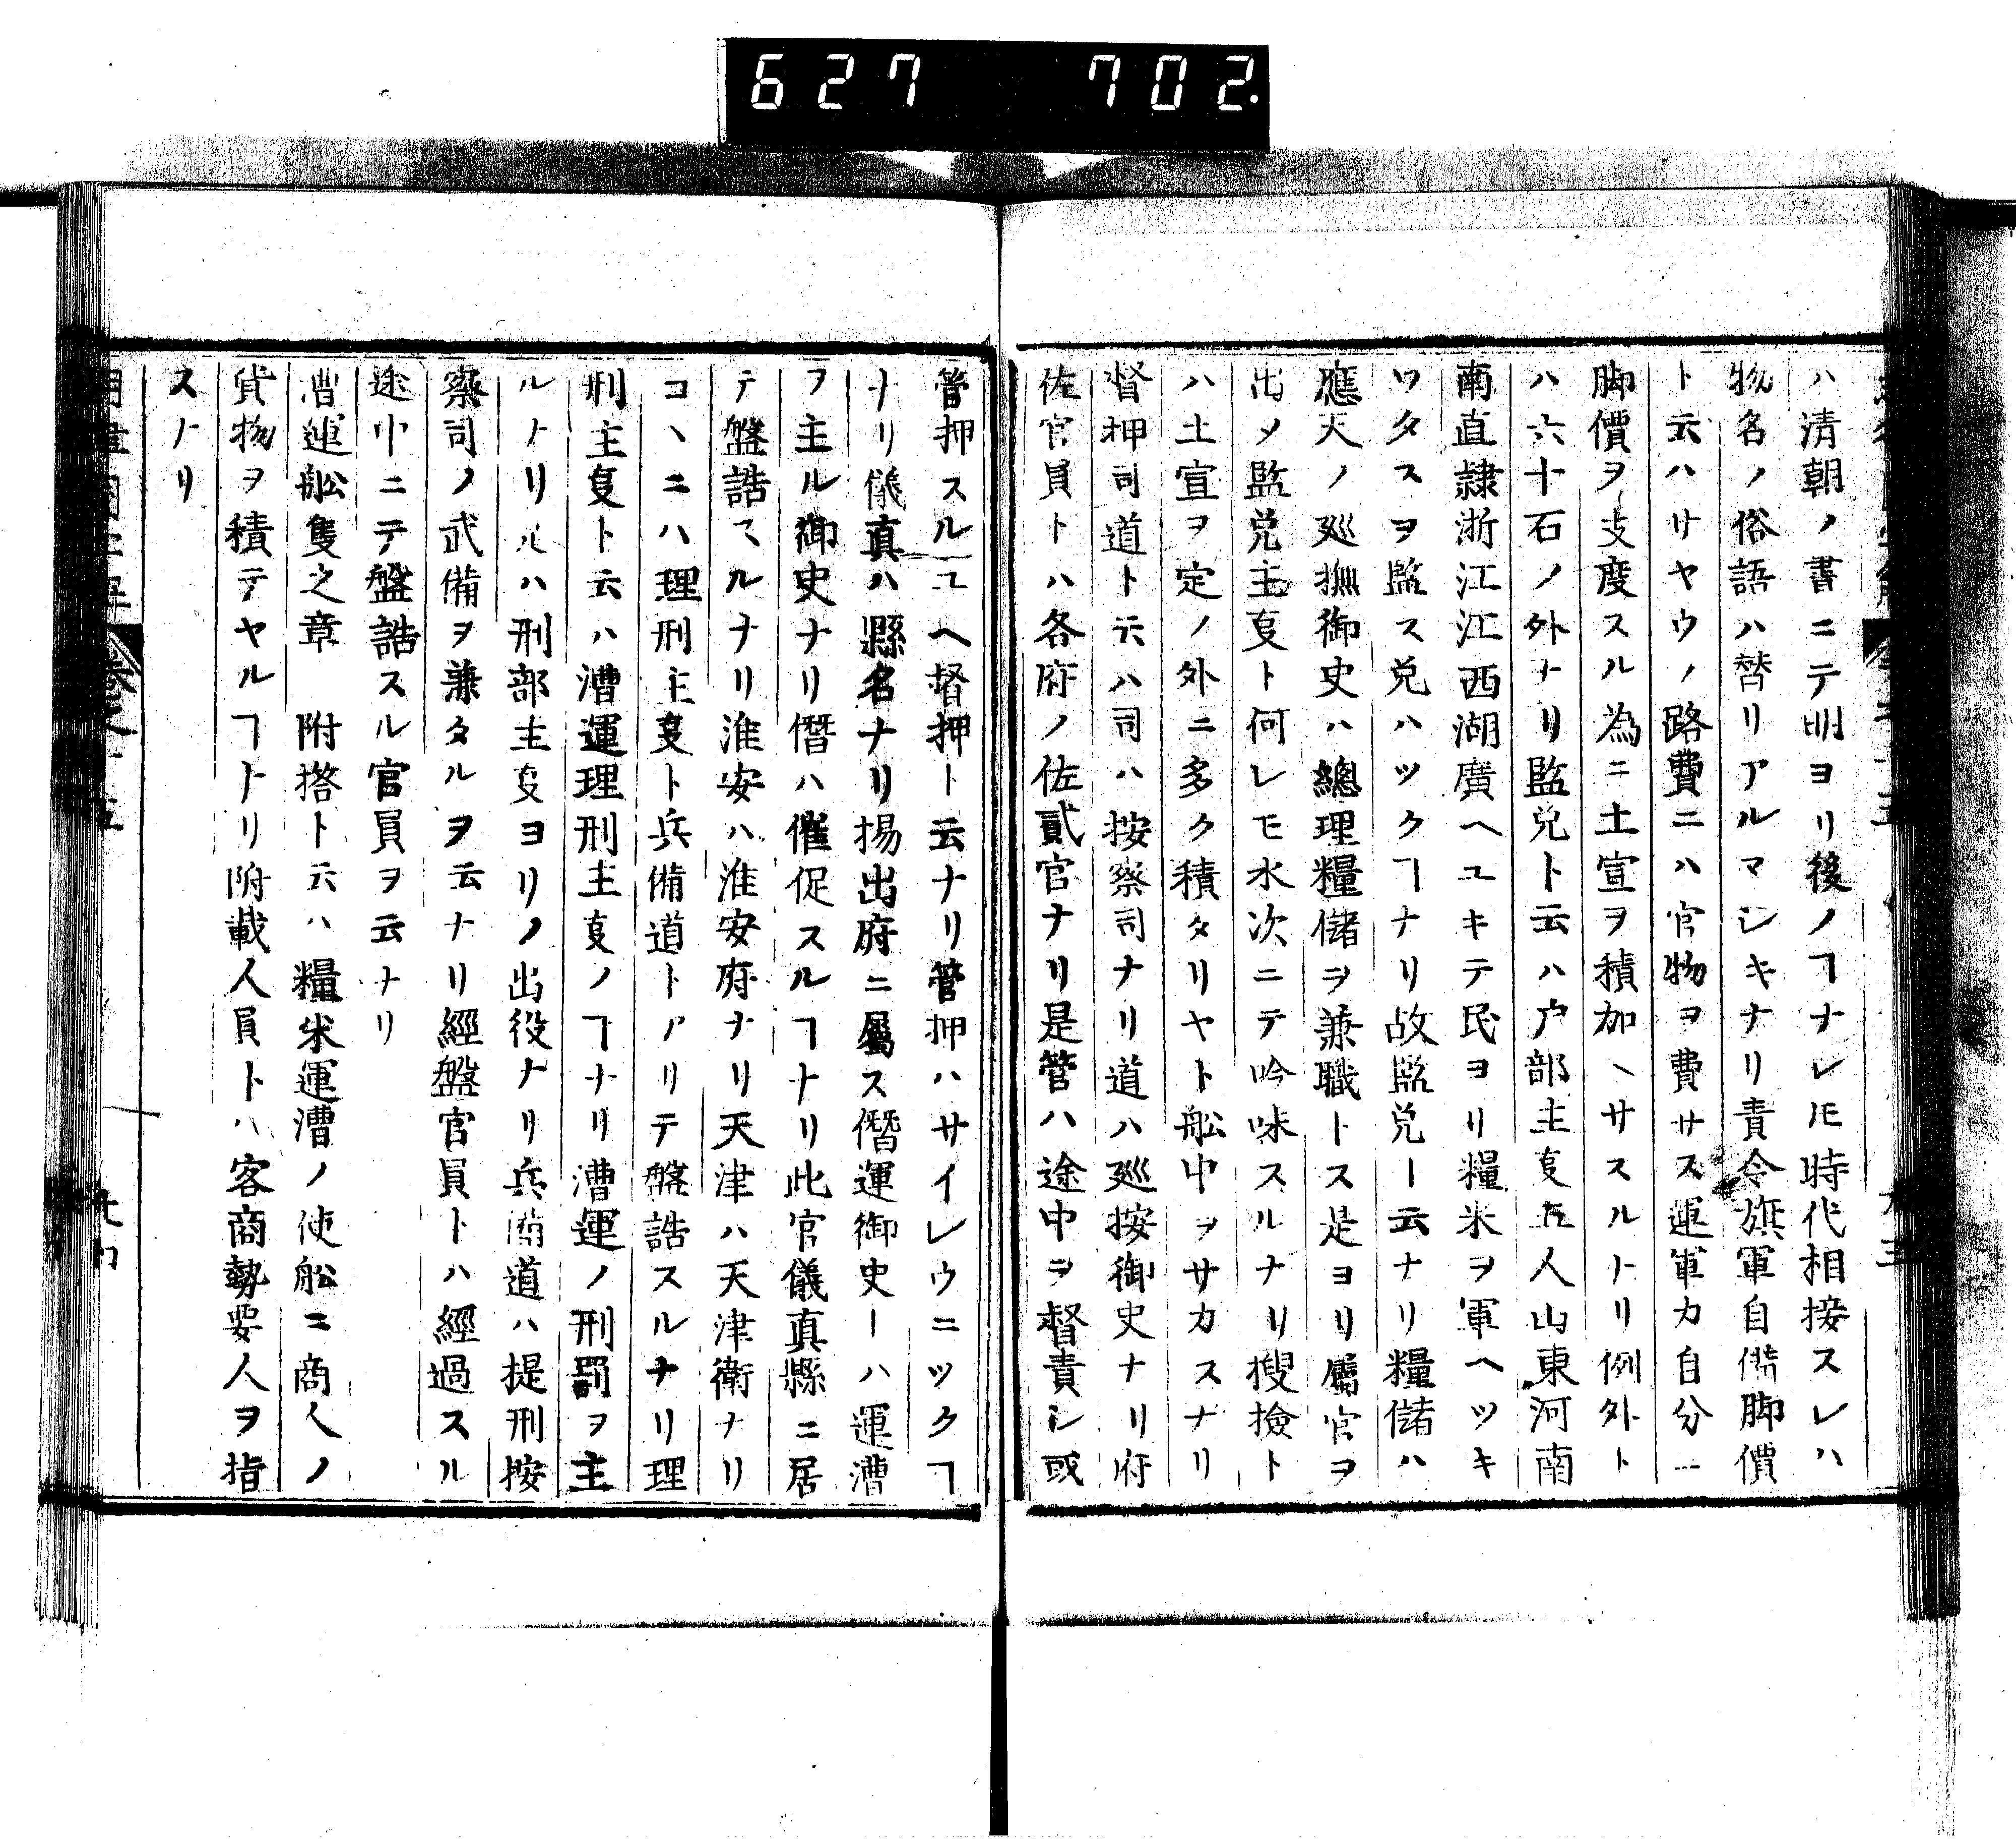 627 702.
ハ清朝ノ書ニテ明ヨリ後ノヿナレ𪜈時代相接スレハ
物名ノ俗語ハ替リアルマシキナリ責令旗軍自備脚價
ト云ハサヤウノ路費ニハ官物ヲ費サス運軍カ自分ニ
脚價ヲ支度スル為ニ土宜ヲ積加ヘサスルトリ例外ト
ハ六十石ノ外ナリ監兌ト云ハ户部主叓五人山東河南
南直隷浙江江西湖廣ヘユキテ民ヨリ糧米ヲ軍ヘツキ
ワタスヲ監ス兌ハツクヿナリ故監兌ト云ナリ糧儲ハ
應天ノ廵撫御史ハ總理糧儲ヲ兼職トス是ヨリ屬官ヲ
出メ監兌主叓ト何レモ水次ニテ吟味スルナリ搜撿ト
ハ土宜ヲ定ノ外ニ多ク積タリヤト舩中ヲサカスナリ
督押司道ト云ハ司ハ按察司ナリ道ハ廵按御史ナリ府
佐官員トハ各府ノ佐貳官ナリ是管ハ途中ヲ督責シ或
管押スルユヘ督押ト云ナリ管押ハサイレウニツクヿ
ナリ儀真ハ縣名ナリ揚出府ニ屬ス僭運御史ーハ運漕
ヲ主ル御史ナリ僭ハ催促スルヿナリ此官儀真縣ニ居
テ盤詰マルナリ淮安ハ淮安府ナリ天津ハ天津衛ナリ
コヽニハ理刑主叓ト兵備道トアリテ盤詰スルナリ理
刑主叓ト云ハ漕運理刑主叓ノヿナリ漕運ノ刑罰ヲ主
ルナリルハ刑部主叓ヨリノ出役ナリ兵備道ハ提刑按
察司ノ武備ヲ兼タルヲ云ナリ經盤官員トハ經過スル
途中ニテ盤詰スル官員ヲ云ナリ
漕運舩隻之章　附搭ト云ハ糧米運漕ノ使舩ニ商人ノ
貨物ヲ積テヤルヿトリ附載人員トハ客商勢要人ヲ指
スナリ